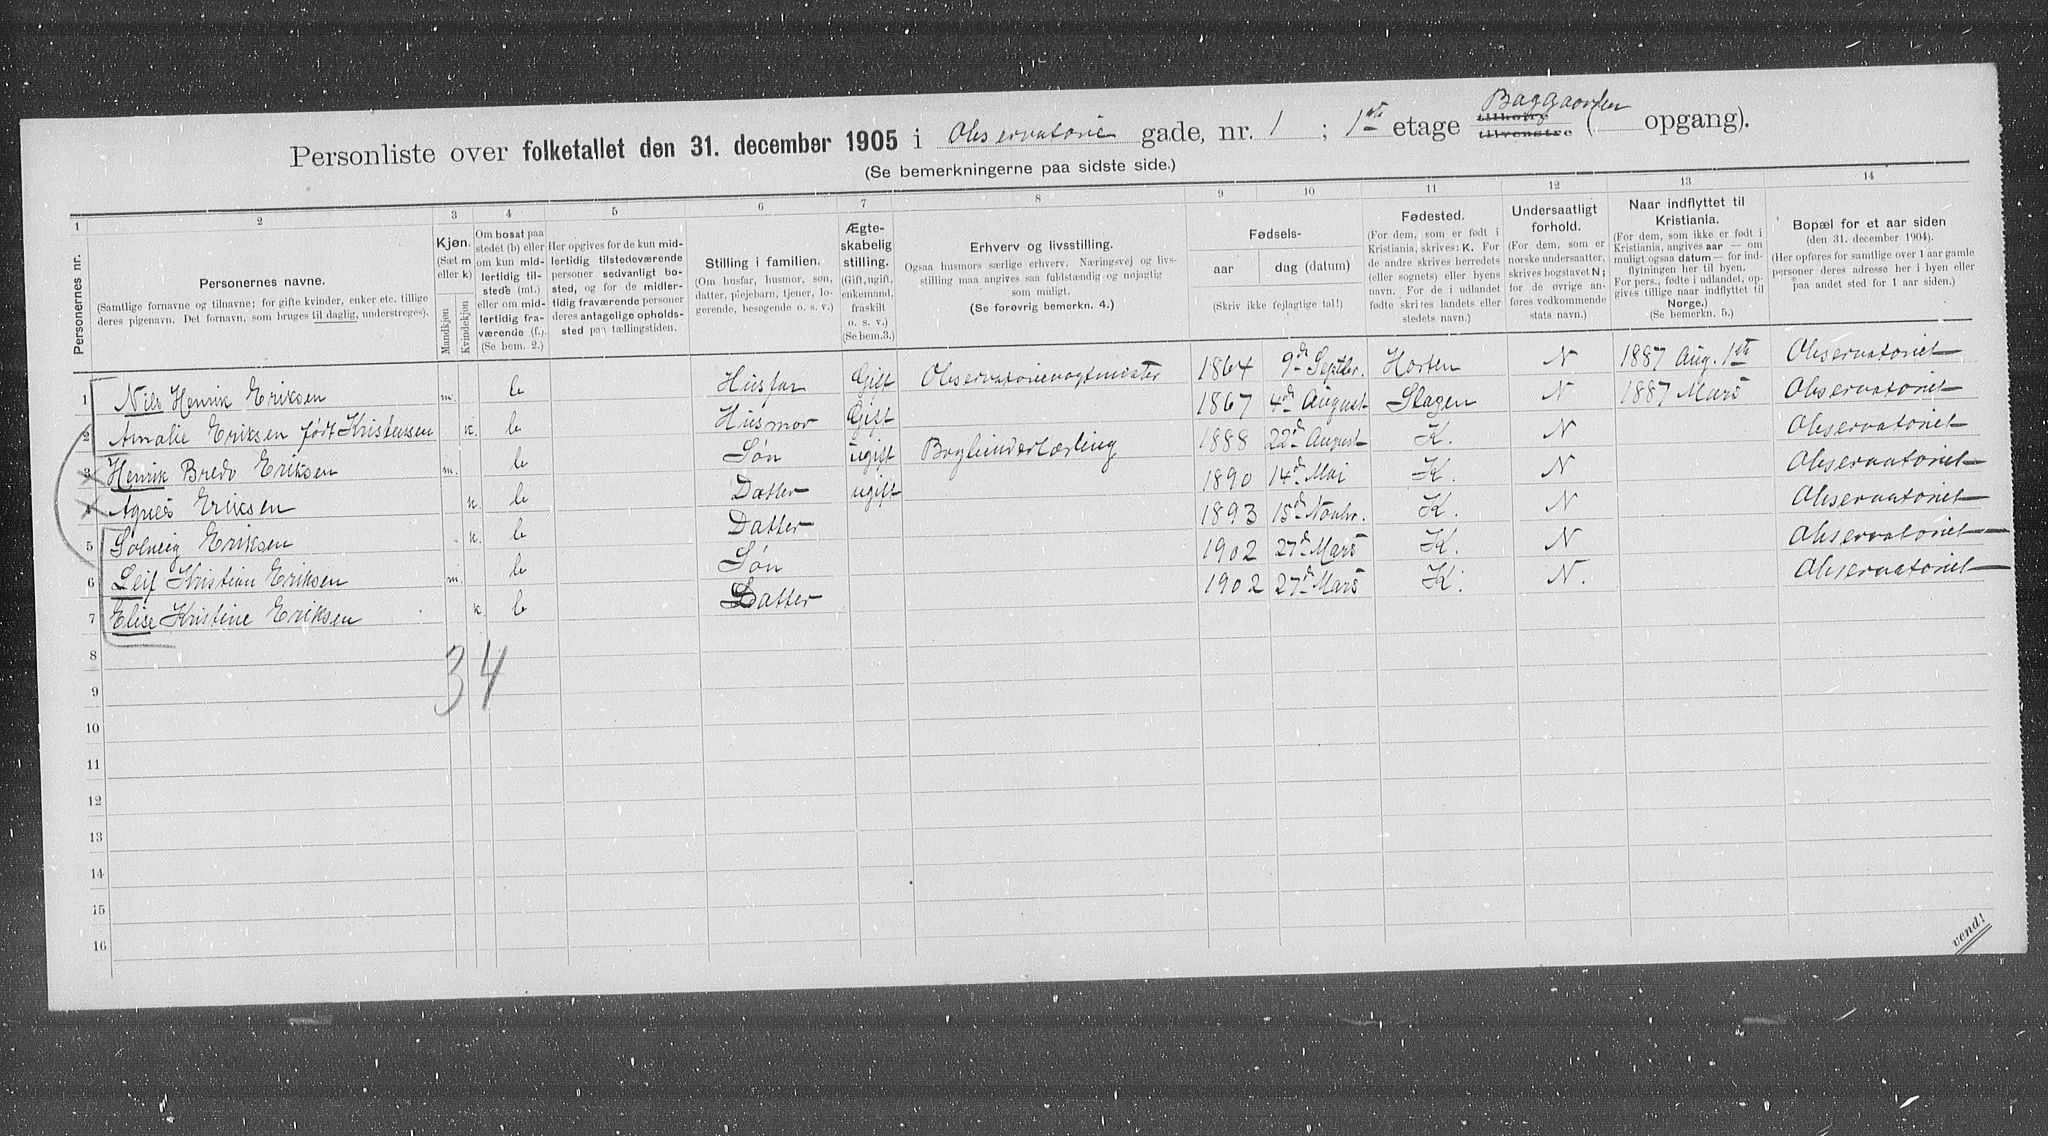 Personliste over folketallet den 31. december 1905 i Observatorie gade, nr. 1 ; 1ste etage tilhøire tilvenstre Baggaarden ( opgang).
(Se bemerkningerne paa sidste side.)
1 2 3 4 5 6 7 8 9 10 11 12 13 14
Personernes nr.
Personernes navne.
(Samtlige fornavne og tilnavne; for gifte kvinder, enker etc. tillige
deres pigenavn. Det fornavn, som bruges til daglig, understreges).
Kjøn.
(Sæt m
eller k)
Mandkjøn
Kvindekjøn
Om bosat paa
stedet (b) eller
om kun mid-
lertidig til-
stede (mt.)
eller om mid-
lertidig fra-
værende (f.).
(Se bem. 2.)
Her opgives for de kun mid-
lertidig tilstedeværende
personer sedvanligt bo-
sted, og for de midler-
tidig fraværende personer
deres antagelige opholds-
sted paa tællingstiden.
Stilling i familien.
(Om husfar, husmor, søn,
datter, plejebarn, tjener, lo-
gerende, besøgende o. s. v.)
Ægte-
skabelig
stilling.
(Gift, ugift,
enkemand,
fraskilt
o. s. v.)
(Se bem.3.)
Erhverv og livsstilling.
Ogsaa husmors særlige erhverv. Næringsvej og livs-
stilling maa angives saa fuldstændig og nøjagtig
som muligt.
(Se forøvrig bemerkn. 4.)
Fødsels-
aar dag (datum)
(Skriv ikke fejlagtige tal!)
Fødested.
(For dem, som er født i
Kristiania, skrives: K. For
de andre skrives herredets
(eller sognets) eller byens
navn. For de i udlandet
fødte skrives landets eller
stedets navn.)
Undersaatligt
forhold.
(For dem, som er
norske undersaatter,
skrives bogstavet N;
for de øvrige an-
føres vedkommende
stats navn.)
Naar indflyttet til
Kristiania.
(For dem, som ikke er født i
Kristiania, angives aar — om
muligt ogsaa datum — for ind-
flytningen her til byen.
For pers., fødte i udlandet, op-
gives tillige naar indflyttet til
Norge.)
(Se bemerkn. 5.)
Bopæl for et aar siden
(den 31. december 1904).
(Her opføres for samtlige over 1 aar gamle
personer deres adresse her i byen eller
paa andet sted for 1 aar siden.)
1 Nils Henrik Eriksen m. b Husfar Gift Observatorievagtmester 1864 9de Septbr. Horten N 1887 Aug. 1ste Observatoriet
2 Amalie Eriksen født Kristensen k. b Husmor Gift 1867 4de August Slagen N 1887 Mars Observatoriet
3 Henrik Bredo Eriksen m. b Søn ugift Bogbinderlærling 1888 22de August K. N Observatoriet
4 Agnes Eriksen k. b Datter ugift 1890 14de Mai K. N Observatoriet
5 Solveig Eriksen k. b Datter 1893 15de Novbr. K. N Observatoriet
6 Leif Kristian Eriksen m. b Søn 1902 27de Mars K. N Observatoriet
7 Elise Kristine Eriksen k. b Datter 1902 27de Mars K. N. Observatoriet
8 3 4
9
10
11
12
13
14
15
16
vend!